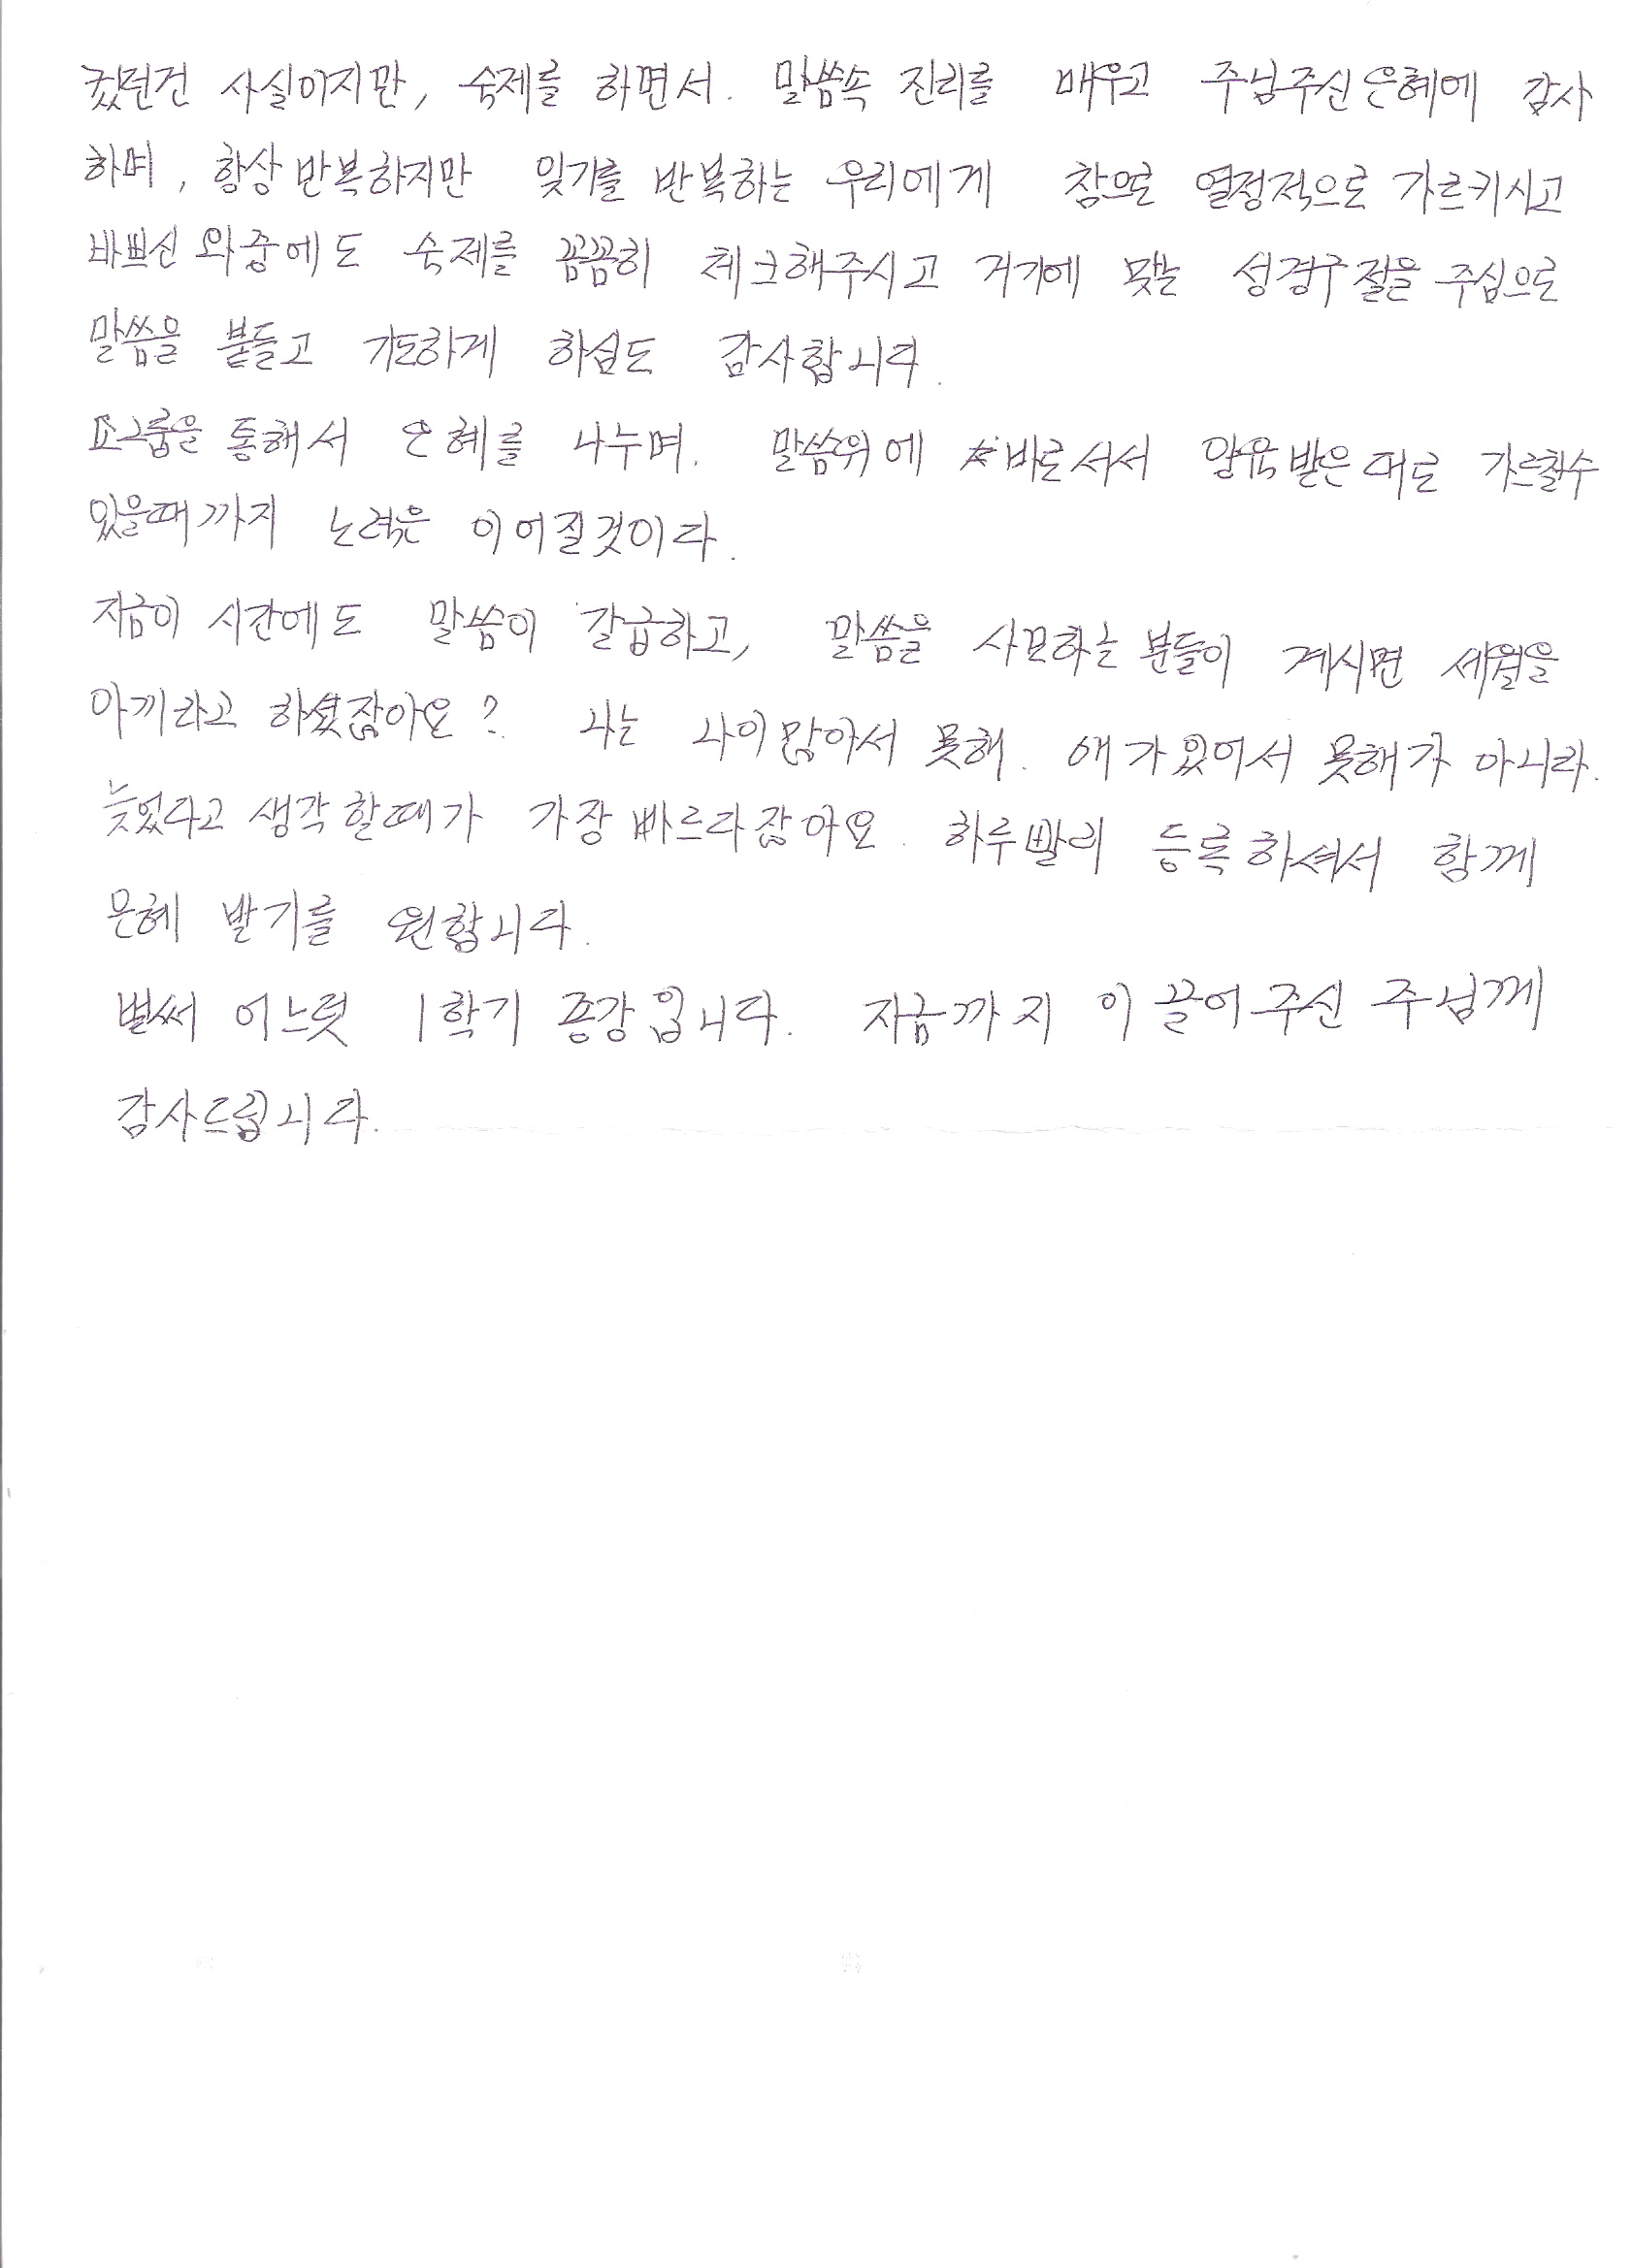 컸던건 사실이지만, 숙제를 하면서. 말씀속 진리를 배우고 주님주신은혜에 감사
하며, 항상반복하지만 잊기를 반복하는 우리에게 참으로 열정적으로 가르키시고
바쁘신 와중에도 숙제를 꼼꼼히 체크해주시고 거기에 맞는 성경구절을 주심으로
말씀을 붙들고 기도하게 하심도 감사합니다.
소그룹을 통해서 은혜를 나누며. 말씀위에 바로서서 양육받은대로 가르칠수
있을때까지 노력은 이어질것이다.
지금이 시간에도 말씀이 갈급하고, 말씀을 사모하는분들이 계시면 세월을
아끼라고 하셨잖아요? 나는 나이많아서 못해. 애가있어서 못해가 아니라.
늦었다고 생각할때가 가장빠르라잖아요. 하루빨리 등록하셔서 함께
은혜 받기를 원합니다.
벌써 어느덧 1학기 종강입니다. 지금까지 이끌어주신 주님께
감사드립니다.